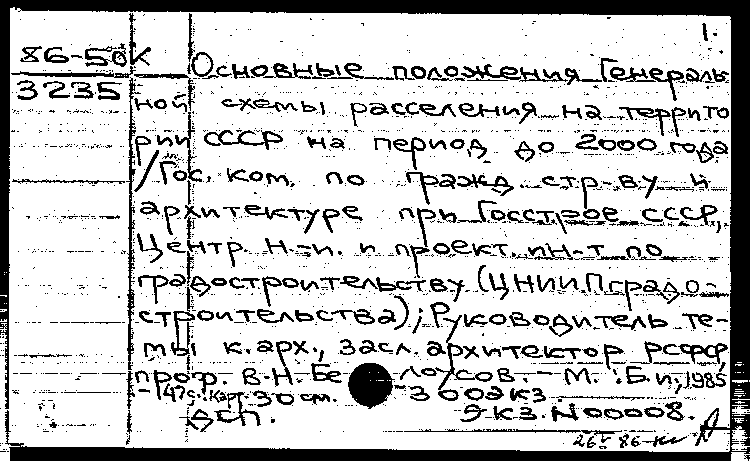 1.
86-50К
3235
Основные положения Генераль
ной схемы расселения на террито
рии СССР на период до 2000 года
/Гос. ком. по гражд. стр-ву и
архитектуре при Госстрое СССР,
Центр. н.-и. и проект. ин-т по
градостроительству (ЦНИИПградо-
строительства); Руководитель те-
мы к. арх., засл. архитектор РСФСР,
проф. В.Н. Белоусов. - М.: Б.и., 1985
- 147 с.: карт. 30 см. 300 экз
ДСП. Экз. N 00008.